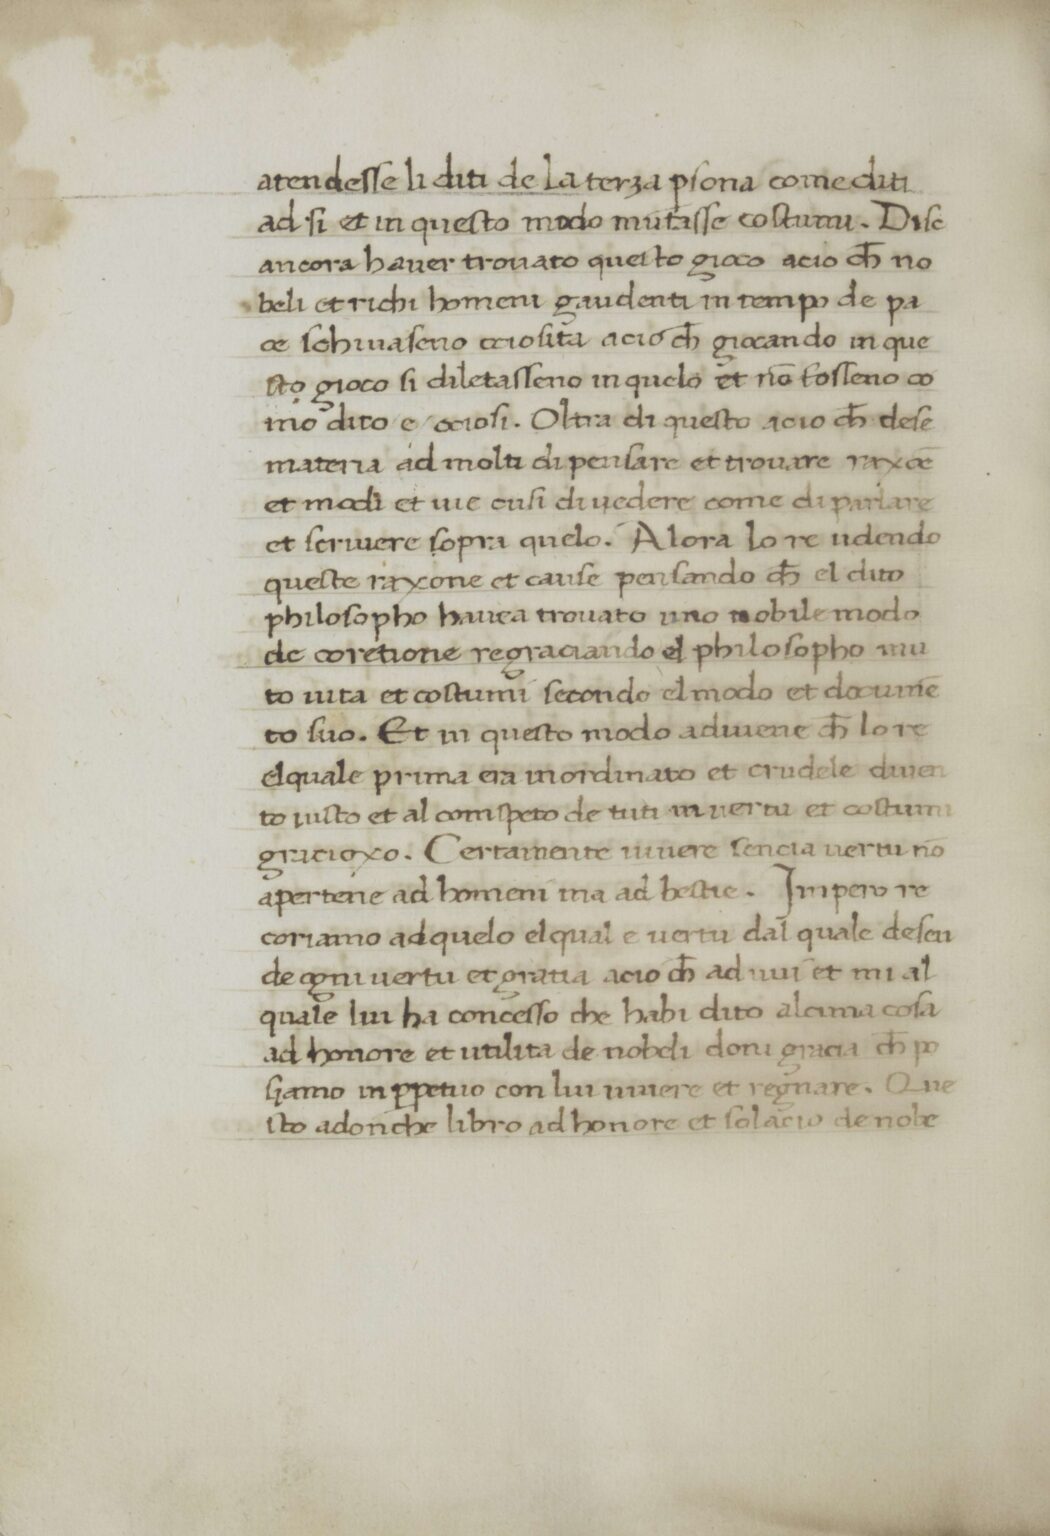 atendesse li diti de la terza psona come diti
ad si et in questo modo mutasse costumi. Dise
ancora haver trovato questo gioco acio ch̄ no
beli et richi homeni gaudenti in tempo de pa
ce schivaseno ociosita acio ch̄ giocando in que
sto gioco si diletasseno in quelo et nō fosseno co
mo dito e ociosi. Oltra di questo acio ch̄ dese
materia ad molti di pensare et trovare raxōe
et modi et vie cusi di vedere come di parlare
et scrivere sopra quelo. Alora lo re udendo
queste raxone et cause pensando ch̄ el dito
philosopho havea trovato uno nobile modo
de coretione regraciando el philosopho mu
to vita et costumi secondo el modo et documē
to suo. Et in questo modo advene ch̄ lo re
el quale prima era inordinato et crudele diven
to iusto et al conspeto de tuti in vertu et costumi
gracioxo. Certamente vivere sencia vertu nō
apertene ad homeni ma ad bestie. Impero re
coriamo ad quelo el qual e vertu dal quale desen
de ogni vertu et gratia acio ch̄ ad vui et mi al
quale lui ha concesso che habi dito alcuna cosa
ad honore et utilita de nobeli doni gracia ch̄ po
siamo in ppetuo con lui vivere et regnare. Que
sto adonche libro ad honore et solacio de nobe